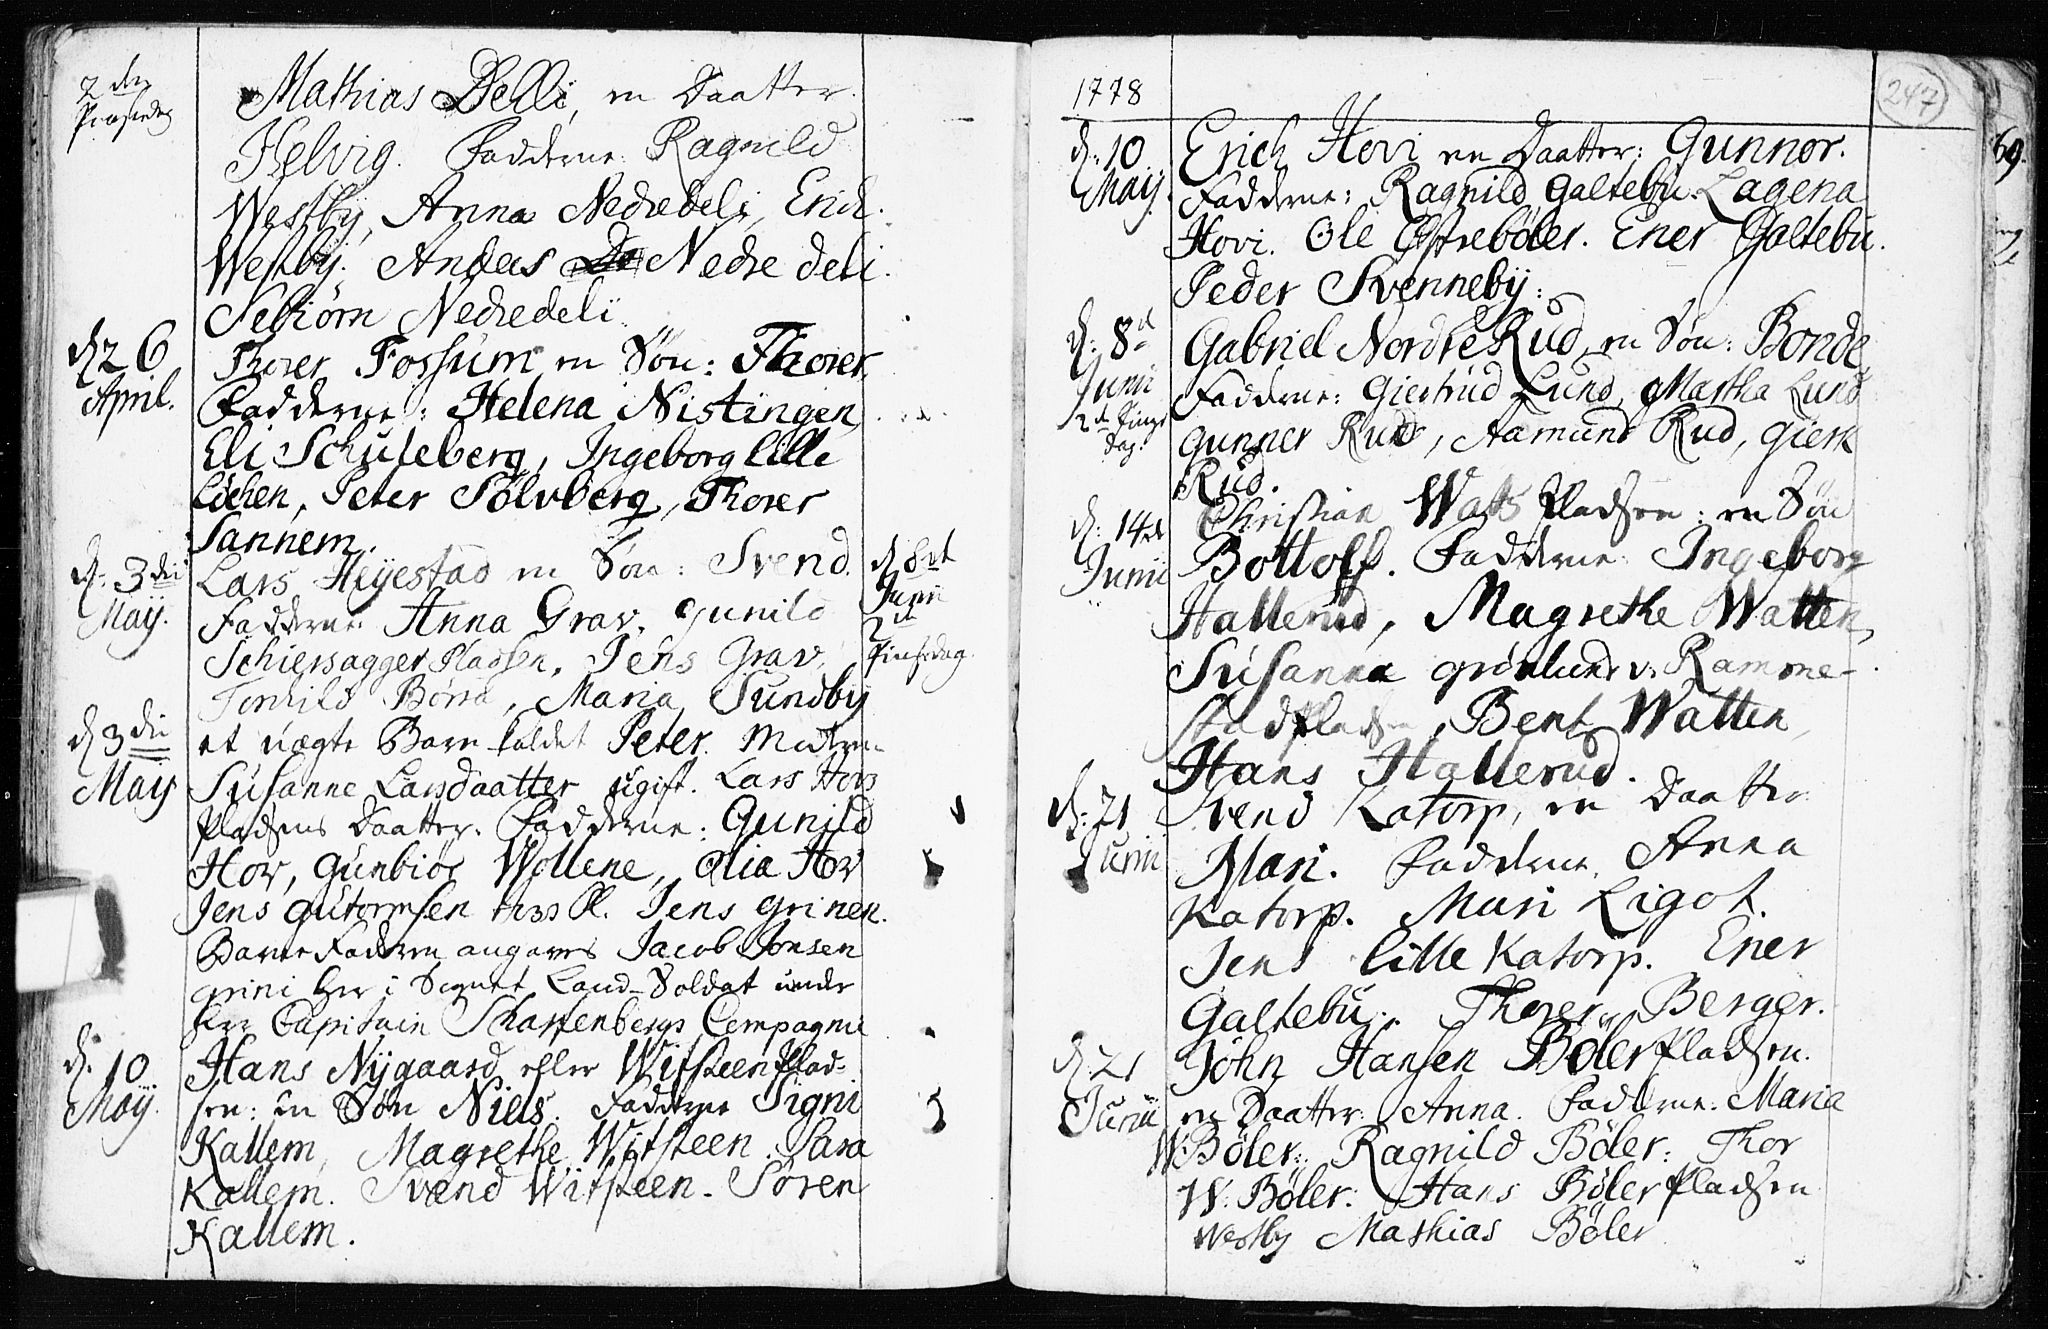 2den
Paaskedag
Mathias Delli, en Daatter
Helvig. Fadderne: Ragnild
Westby, Anna Nedredeli, Erich
Westby. Anders Nedre deli.
Sebiørn Nedredeli
d. 26
April.
Thorer Fossum en Søn: Thorer.
Fadderne: Helena Nistingen,
Eli Schuleberg, Ingeborg lille
Løchen, Peter Sølvberg, Thorer
Sannem.
d: 3die
Maij.
Lars Heyestad en Søn: Svend.
Fadderne: Anna Grav, Gunild
Schiersagger Pladsen, Jens Grav,
Børra, Maria Sundby
d 8de
Junii
2den
Pintsedag.
d 3die
Maij
et uægte Barn kaldet Peter. Moderen
Susanne Larsdaatter ugift. Lars Hovs
Pladsens Daatter. Fadderne: Gunild
Hov, Gunbior Wollene, Olia Hov
Jens Gutormsen Hovs Pl. Jens Grinen.
Barnefaderen angaves Jacob Jonsen
Grini her i Sognet Land-Soldat under
Herr Capitain Scharfenbergs Compagnie
d. 10
Maij.
Hans Nygaard eller Witsteen Plad-
sen: en Søn Niels. Fadderne Signi
Kallem, Magrethe Witsteen. Sara
Kallem. Svend Witsteen. Søren
Kallem.
1778
247
d: 10
Maij.
Erich Hovi en Daatter: Gunnor.
Fadderne: Ragnild Galtebu. Lagena
Hovi. Ole Østrebøler. Ener Galtebu.
Peder Svenneby:
d: 8d
Junii
2de Pinse
Dag.
Gabriel Nordre Rud, en Søn: Bonde
Fadderne: Giertrud Lund, Martha Lund
Gunner Rud, Aamund Rud,
Rud.
d: 14de
Junii
Christian Watts Pladsen: en Søn
Bottolf. Fadderne: Ingeborg
Hallerud, Magrethe Watten,
Susanna Grønlund v: Ramme-
stad pladsen, Bent Watten,
Hans Hallerud.
d: 21
Junii
Svend Katorp, en Daatter
Mari. Fadderne. Anna
Katorp. Mari Ligot.
Jens lille Katorp. Ener
Galtebu. Thorer Berger.
d. 21
Junii
John Hansen Bøler Pladsen.
en Daatter: Anna. Fadderne: Maria
W: Bøler: Ragnild Bøler: Thor
W: Bøler: Hans Bøler Pladsen
Westby Mathias Bøler
69.